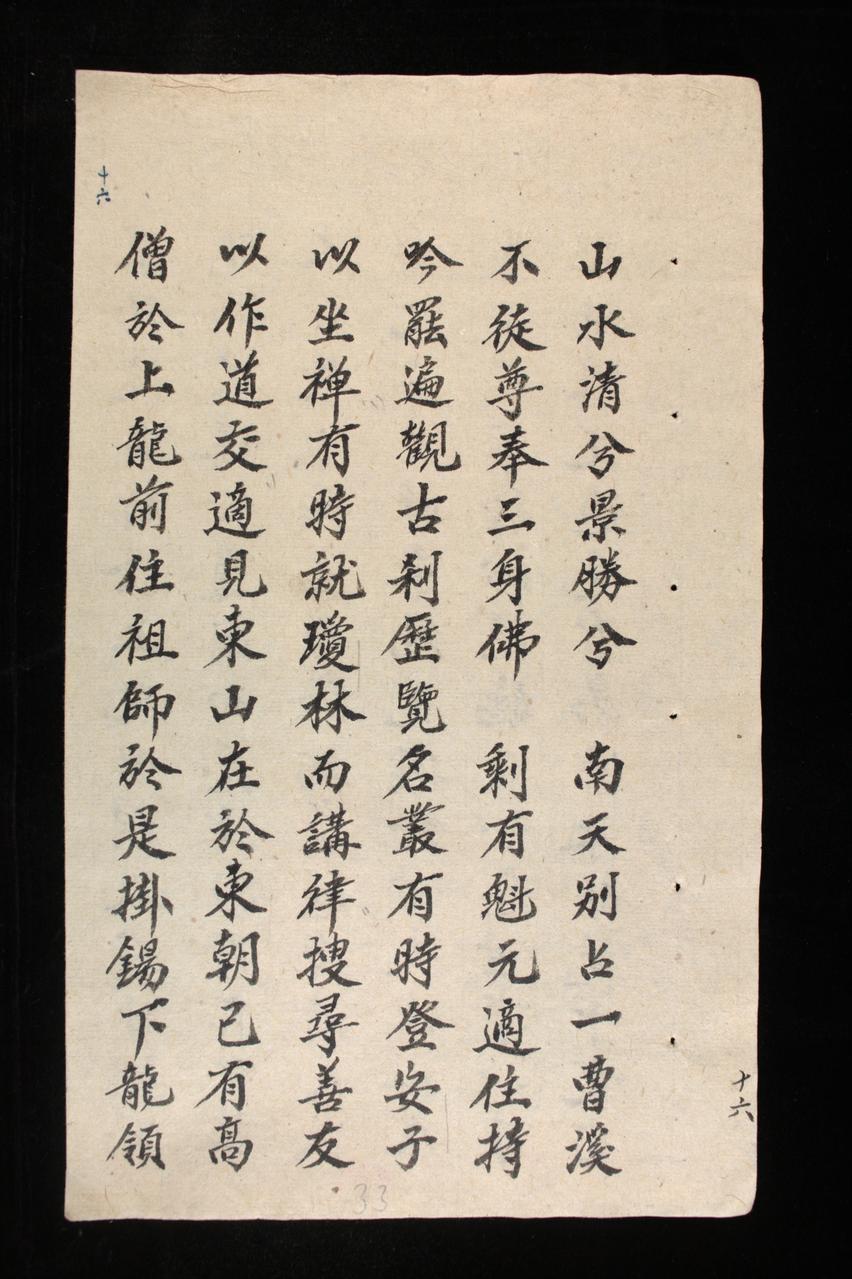 山水清兮景勝兮　南天别占一曹溪
不徒尊奉三身佛　剩有魁元適住持
吟罷遍觀古刹歷覽名叢有時登安子
以坐禅有時就瓊林而講律搜尋善友
以作道交適見東山在於東朝已有高
僧於上龍前住祖師於是掛錫下龍領
十六
十六
33